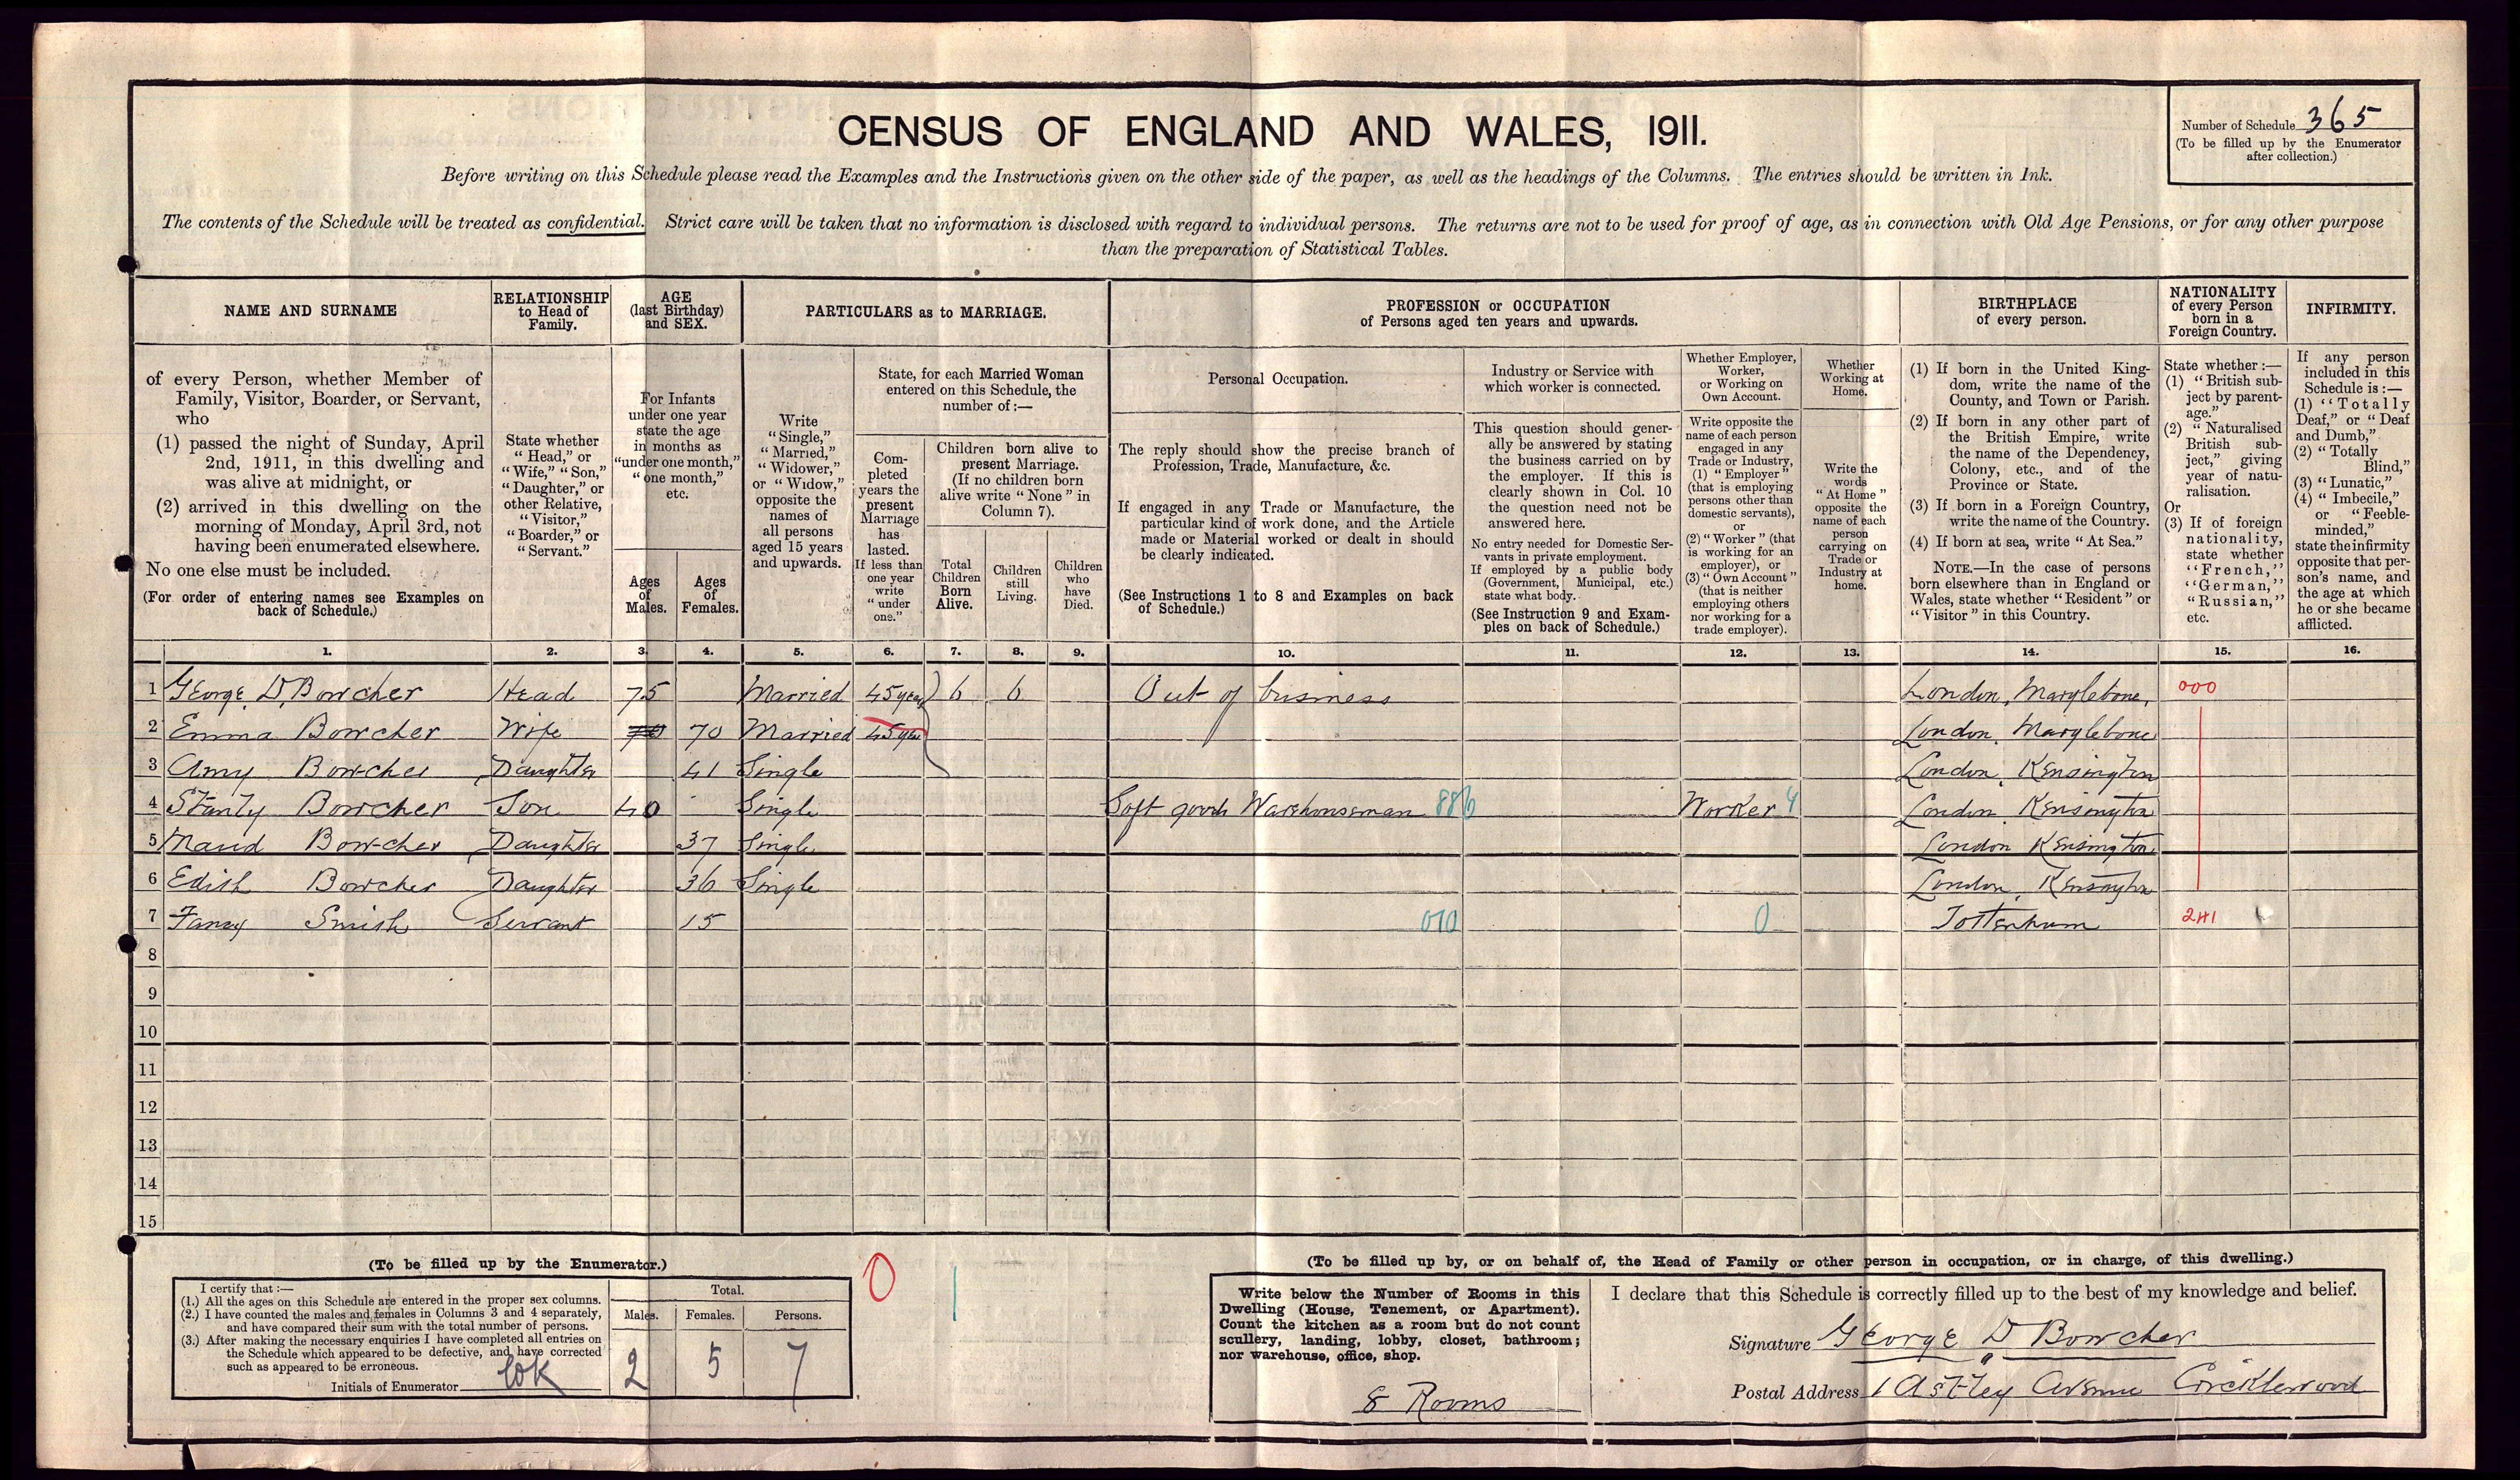 CENSUS OF ENGLAND AND WALES, 1911.
Number of Schedule 365
(To be filled up by the Enumerator
after collection.)
Before writing on this Schedule please read the Examples and the Instructions given on the other side of the paper, as well as the headings of the Columns. The entries should be written in Ink.
The contents of the Schedule will be treated as confidential. Strict care will be taken that no information is disclosed with regard to individual persons. The returns are not to be used for proof of age, as in connection with Old Age Pensions, or for any other purpose
than the preparation of Statistical Tables.
NAME AND SURNAME
of every Person, whether Member of
Family, Visitor, Boarder, or Servant,
who
(1) passed the night of Sunday, April
2nd, 1911, in this dwelling and
was alive at midnight, or
(2) arrived in this dwelling on the
morning of Monday, April 3rd, not
having been enumerated elsewhere.
No one else must be included.
(For order of entering names see Examples on
back of Schedule.)
RELATIONSHIP
to Head of
Family.
State whether
"Head," or
"Wife," "Son,"
"Daughter," or
other Relative,
"Visitor,"
"Boarder," or
"Servant."
AGE
(last Birthday)
and SEX.
For Infants
under one year
state the age
in months as
"under one month,"
"one month,"
etc.
Ages
of
Males.
Ages
of
Females.
PARTICULARS as to MARRIAGE.
Write
"Single,"
"Married,"
"Widower,"
or "Widow,"
opposite the
names of
all persons
aged 15 years
and upwards.
State, for each Married Woman
entered on this Schedule, the
number of :—
Com-
pleted
years the
present
Marriage
has
lasted.
If less than
one year
write
"under
one."
Children born alive to
present Marriage.
(If no children born
alive write "None" in
Column 7).
Total
Children
Born
Alive.
Children
still
Living.
Children
who
have
Died.
PROFESSION or OCCUPATION
of Persons aged ten years and upwards.
Personal Occupation.
The reply should show the precise branch of
Profession, Trade, Manufacture, &c.
If engaged in any Trade or Manufacture, the
particular kind of work done, and the Article
made or Material worked or dealt in should
be clearly indicated.
(See Instructions 1 to 8 and Examples on back
of Schedule.)
Industry or Service with
which worker is connected.
This question should gener-
ally be answered by stating
the business carried on by
the employer. If this is
clearly shown in Col. 10
the question need not be
answered here.
No entry needed for Domestic Ser-
vants in private employment.
If employed by a public body
(Government, Municipal, etc.)
state what body.
(See Instruction 9 and Exam-
ples on back of Schedule.)
Whether Employer,
Worker,
or Working on
Own Account.
Write opposite the
name of each person
engaged in any
Trade or Industry,
(1) "Employer"
(that is employing
persons other than
domestic servants),
or
(2) "Worker" (that
is working for an
employer), or
(3) "Own Account"
(that is neither
employing others
nor working for a
trade employer).
Whether
Working at
Home.
Write the
words
"At Home"
opposite the
name of each
person
carrying on
Trade or
Industry at
home.
BIRTHPLACE
of every person.
(1) If born in the United King-
dom, write the name of the
County, and Town or Parish.
(2) If born in any other part of
the British Empire, write
the name of the Dependency,
Colony, etc., and of the
Province or State.
(3) If born in a Foreign Country,
write the name of the Country.
(4) If born at sea, write "At Sea."
NOTE.—In the case of persons
born elsewhere than in England or
Wales, state whether "Resident" or
"Visitor" in this Country.
NATIONALITY
of every Person
born in a
Foreign Country.
State whether :—
(1) "British sub-
ject by parent-
age."
(2) "Naturalised
British sub-
ject," giving
year of natu-
ralisation.
Or
(3) If of foreign
nationality,
state whether
"French,"
"German,"
"Russian,"
etc.
INFIRMITY.
If any person
included in this
Schedule is :—
(1) "Totally
Deaf," or "Deaf
and Dumb,"
(2) "Totally
Blind,"
(3) "Lunatic,"
(4) "Imbecile,"
or "Feeble-
minded,"
state the infirmity
opposite that per-
son's name, and
the age at which
he or she became
afflicted.
1. 2. 3. 4. 5. 6. 7. 8. 9. 10. 11. 12. 13. 14. 15. 16.
1 George D Bowcher Head 75 Married 45 years 6 6 Out of business London, Marylebone, 000
2 Emma Bowcher Wife 70 70 Married 45 years London, Marylebone
3 Amy Bowcher Daughter 41 Single London, Kensington
4 Stanly Bowcher Son 40 Single Soft goods Warehouseman 886 Worker 4 London, Kensington
5 Maud Bowcher Daughter 37 Single London Kensington
6 Edith Bowcher Daughter 36 Single London, Kensington
7 Fanny Smith Servant 15 010 0 Tottenham 241
8
9
10
11
12
13
14
15
(To be filled up by the Enumerator.)
I certify that :—
(1.) All the ages on this Schedule are entered in the proper sex columns.
(2.) I have counted the males and females in Columns 3 and 4 separately,
and have compared their sum with the total number of persons.
(3.) After making the necessary enquiries I have completed all entries on
the Schedule which appeared to be defective, and have corrected
such as appeared to be erroneous.
Initials of Enumerator
Total.
Males. Females. Persons.
2 5 7
0 1
(To be filled up by, or on behalf of, the Head of Family or other person in occupation, or in charge, of this dwelling.)
Write below the Number of Rooms in this
Dwelling (House, Tenement, or Apartment).
Count the kitchen as a room but do not count
scullery, landing, lobby, closet, bathroom;
nor warehouse, office, shop.
8 Rooms
I declare that this Schedule is correctly filled up to the best of my knowledge and belief.
Signature George D Bowcher
Postal Address 1 Astley Avenue Cricklewood